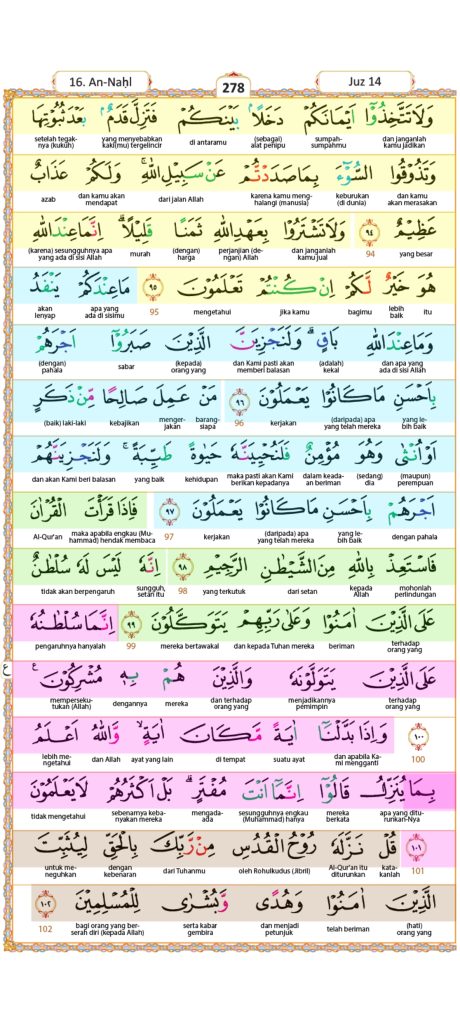 16. An-Naḥl 278 Juz 14
وَلَا تَتَّخِذُوْٓا اَيْمَانَكُمْ دَخَلًاۢ بَيْنَكُمْ فَتَزِلَّ قَدَمٌۢ بَعْدَ ثُبُوْتِهَا
dan janganlah kamu jadikan sumpah-sumpahmu (sebagai) alat penipu di antaramu yang menyebabkan kaki(mu) tergelincir setelah tegak-nya (kukuh)
وَتَذُوْقُوا السُّوْۤءَ بِمَا صَدَدْتُّمْ عَنْ سَبِيْلِ اللّٰهِ ۚ وَلَكُمْ عَذَابٌ
dan kamu akan merasakan keburukan (di dunia) karena kamu meng-halangi (manusia) dari jalan Allah dan kamu akan mendapat azab
عَظِيْمٌ ٩٤ وَلَا تَشْتَرُوْا بِعَهْدِ اللّٰهِ ثَمَنًا قَلِيْلًاۗ اِنَّمَا عِنْدَ اللّٰهِ
yang besar 94 dan janganlah kamu jual perjanjian (de-ngan) Allah (dengan) harga murah (karena) sesungguhnya apa yang ada di sisi Allah
هُوَ خَيْرٌ لَّكُمْ اِنْ كُنْتُمْ تَعْلَمُوْنَ ٩٥ مَا عِنْدَكُمْ يَنْفَدُ
itu lebih baik bagimu jika kamu mengetahui 95 apa yang ada di sisimu akan lenyap
وَمَا عِنْدَ اللّٰهِ بَاقٍۗ وَلَنَجْزِيَنَّ الَّذِيْنَ صَبَرُوْٓا اَجْرَهُمْ
dan apa yang ada di sisi Allah (adalah) kekal dan Kami pasti akan memberi balasan (kepada) orang yang sabar (dengan) pahala
بِاَحْسَنِ مَا كَانُوْا يَعْمَلُوْنَ ٩٦ مَنْ عَمِلَ صَالِحًا مِّنْ ذَكَرٍ
yang le-bih baik (daripada) apa yang telah mereka kerjakan 96 barang-siapa menger-jakan kebajikan (baik) laki-laki
اَوْ اُنْثٰى وَهُوَ مُؤْمِنٌ فَلَنُحْيِيَنَّهٗ حَيٰوةً طَيِّبَةًۚ وَلَنَجْزِيَنَّهُمْ
(maupun) perempuan (sedang) dia dalam keada-an beriman maka pasti akan Kami berikan kepadanya kehidupan yang baik dan akan Kami beri balasan
اَجْرَهُمْ بِاَحْسَنِ مَا كَانُوْا يَعْمَلُوْنَ ٩٧ فَاِذَا قَرَأْتَ الْقُرْاٰنَ
dengan pahala yang le-bih baik (daripada) apa yang telah mereka kerjakan 97 maka apabila engkau (Mu-hammad) hendak membaca Al-Qur'an
فَاسْتَعِذْ بِاللّٰهِ مِنَ الشَّيْطٰنِ الرَّجِيْمِ ٩٨ اِنَّهٗ لَيْسَ لَهٗ سُلْطٰنٌ
mohonlah perlindungan kepada Allah dari setan yang terkutuk 98 sungguh, setan itu tidak akan berpengaruh
عَلَى الَّذِيْنَ اٰمَنُوْا وَعَلٰى رَبِّهِمْ يَتَوَكَّلُوْنَ ٩٩ اِنَّمَا سُلْطٰنُهٗ
terhadap orang yang beriman dan kepada Tuhan mereka mereka bertawakal 99 pengaruhnya hanyalah
عَلَى الَّذِيْنَ يَتَوَلَّوْنَهٗ وَالَّذِيْنَ هُمْ بِهٖ مُشْرِكُوْنَ ࣖ ع
terhadap orang yang menjadikannya pemimpin dan terhadap orang yang mereka dengannya memperseku-tukan (Allah)
١٠٠ وَاِذَا بَدَّلْنَآ اٰيَةً مَّكَانَ اٰيَةٍۙ وَّاللّٰهُ اَعْلَمُ
100 dan apabila Ka-mi mengganti suatu ayat di tempat ayat yang lain dan Allah lebih me-ngetahui
بِمَا يُنَزِّلُ قَالُوْٓا اِنَّمَآ اَنْتَ مُفْتَرٍۗ بَلْ اَكْثَرُهُمْ لَا يَعْلَمُوْنَ
apa yang ditu-runkan-Nya mereka berkata sesungguhnya engkau (Muhammad) hanya mengada-ada sebenarnya keba-nyakan mereka tidak mengetahui
١٠١ قُلْ نَزَّلَهٗ رُوْحُ الْقُدُسِ مِنْ رَّبِّكَ بِالْحَقِّ لِيُثَبِّتَ
101 kata-kanlah Al-Qur'an itu diturunkan oleh Rohulkudus (Jibril) dari Tuhanmu dengan kebenaran untuk me-neguhkan
الَّذِيْنَ اٰمَنُوْا وَهُدًى وَّبُشْرٰى لِلْمُسْلِمِيْنَ ١٠٢
(hati) orang yang telah beriman dan menjadi petunjuk serta kabar gembira bagi orang yang ber-serah diri (kepada Allah) 102